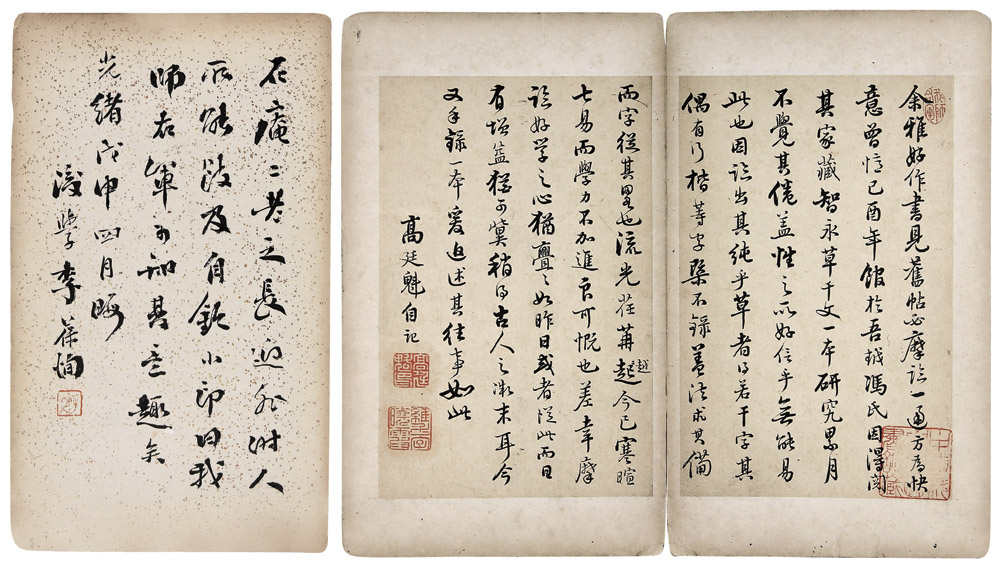 余雅好作書見舊帖必摩臨一通方為快
意曾憶己酉年館於吾城馮氏因得閱
其家藏智永草千文一本研究累月
不覺其倦蓋性之所好信乎無能易
此也因臨出其純乎草者得若干字其
偶有行楷等字槩不錄蓋法求其備
而字從其畧也流光荏苒越今已寒暄
七易而學力不加進良可慨也差幸摩
臨好學之心猶亹亹如昨日或者從此而日
有增益猶可冀稍得古人之微末耳今
又手錄一本爰追述其往事如此
高廷魁自記
石庵二老之長迥非時人
所能跂及自鈐小印曰我
師右軍可知其意趣矣
光緒戊申四月晦
後學李葆恂